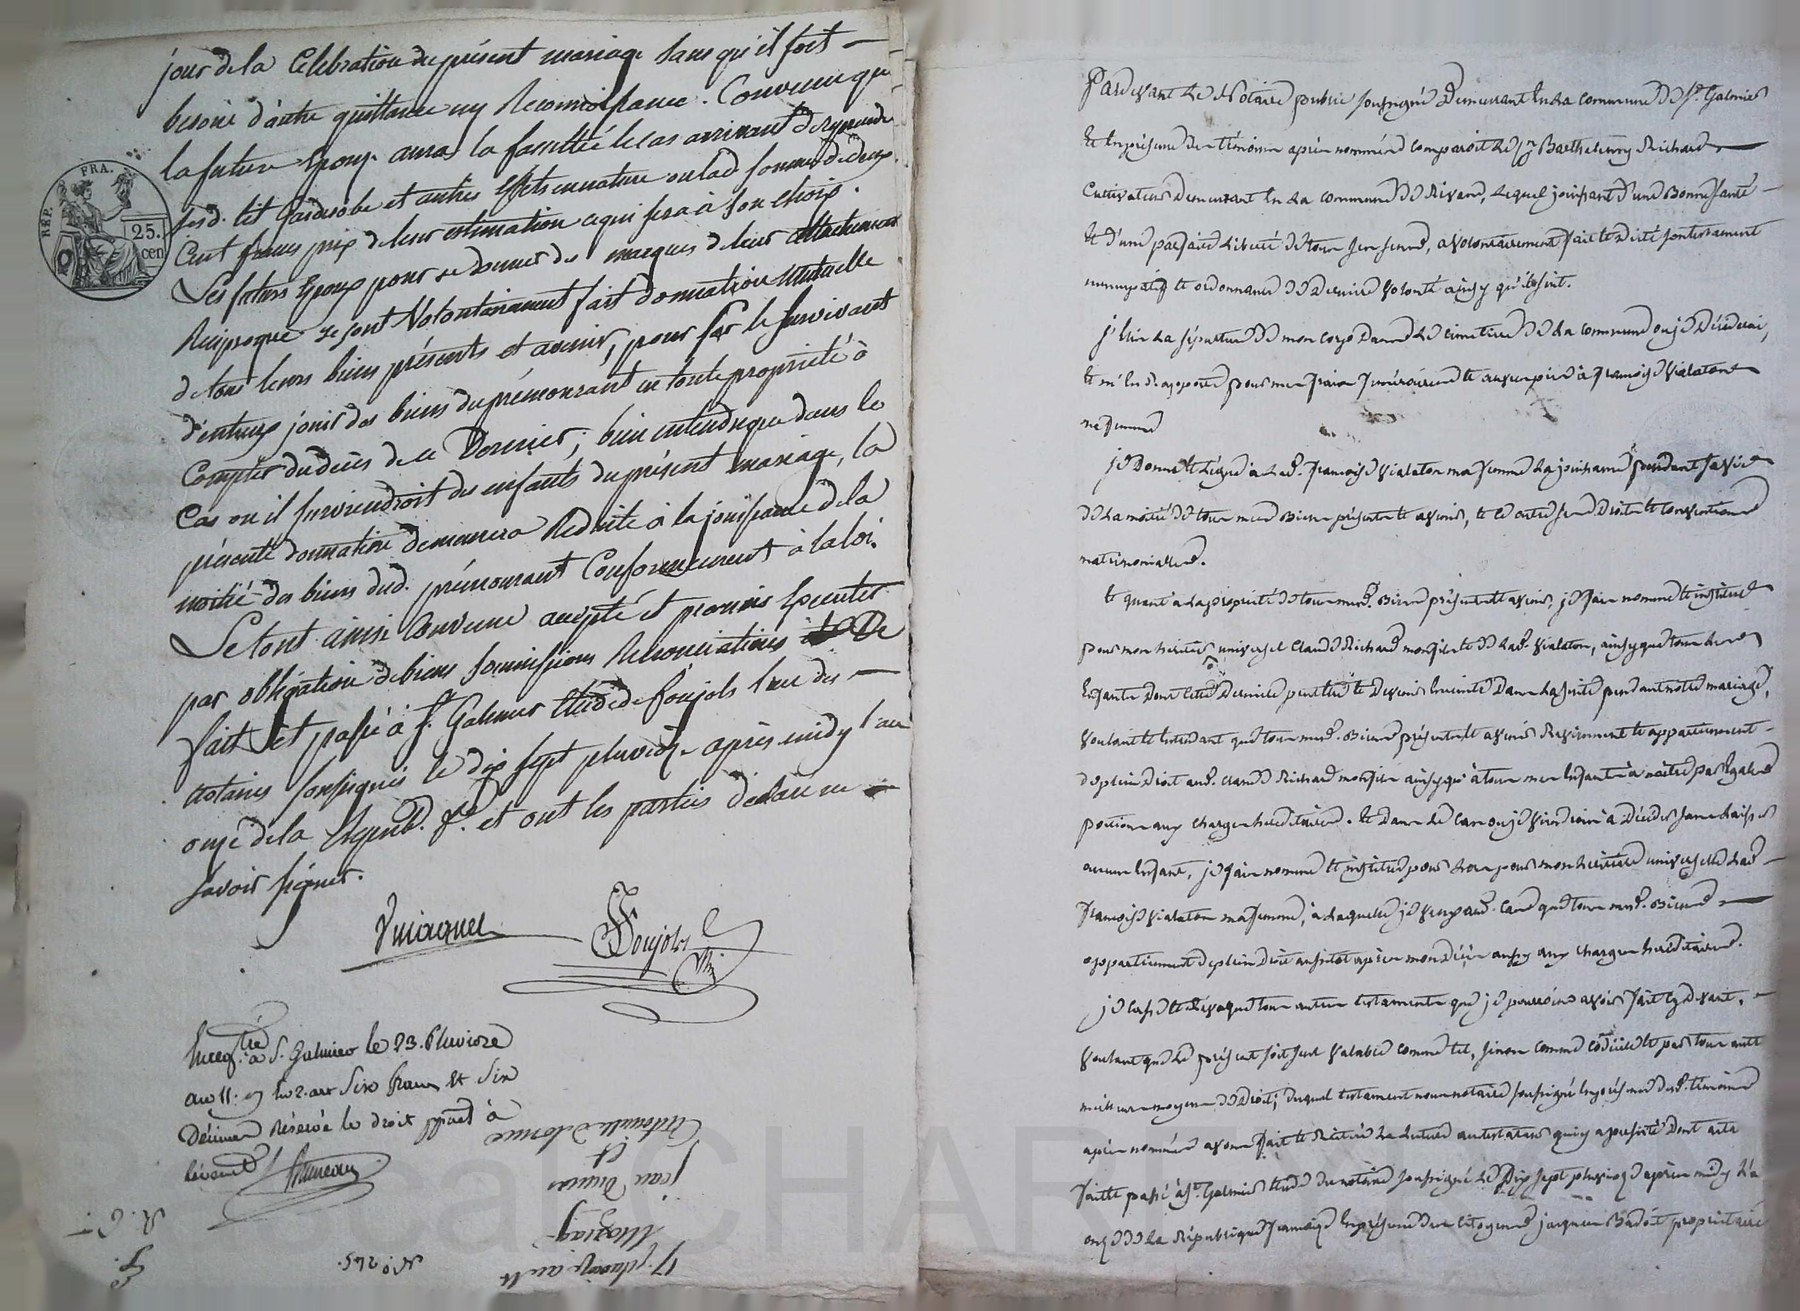 jour de la Celebration du présent mariage sans qu'il soit
besoin d'autre quittance ny Reconnoissance. Convenu que
la future Epouse aura la faculté le cas arrivant de reprendre
sesd. lit garderobe et autres effets en nature ou lad. somme de deux
Cent francs prix de leur estimation ce qui sera à son choix.
Les futurs Epoux pour se donner des marques de leur attachement
Reciproque se sont Volontairement fait donnation Mutuelle
de tous leurs biens présents et avenir, pour par le survivant
d'entreux jouir des biens du prémourant en toute propriété à
Compter du décès de ce Dernier; bien entendu que dans le
Cas ou il surviendroit des enfants du présent mariage, la
présente donnation demeurera Reduite à la jouissance de la
moitié des biens dud. prémourant Conformement à la loi.
Le tout ainsi Convenu accepté et promis Executer
par obligation de biens soumissions Renonciations De
fait et passé à St. Galmier Etude de Foujols l'un des
notaires soussignés le dix sept pluviose après midy l'an
onze de la Répub. fse. et ont les parties déclaré ne
savoir signer.
Foujols
Enregtré à St. Galmier le 23. Pluviose
an 11. Six francs et Six
Décimes réservé le droit à
RÉP. FRA.
25. cen
17 pluviose an 11
Mariage
Jean
et
Antoinette
No. 265.
Pardevant Le Notaire public soussigné Demeurant En La commune De St. Galmier
Et En présence Des témoins après nommés comparoit Le Sr. Barthelemy Richard
Cultivateur Demeurant En La commune De Rivas, Lequel jouissant D'une Bonne santé
Et D'une parfaite Liberté De tous ses sens, a volontairement fait Et Dicté son testament
nuncupatif Et ordonnance De Derniere volonté ainsy qu'il suit.
j'Elis La sépulture De mon corps Dans Le cimetiere De La commune ou je Décéderai,
Et m'En rapporte pour mes frais funéraires Et œuvres pies à françoise Vialaton
ma femme
je Donne Et Légue à Lad. françoise Vialaton ma femme La jouissance pendant sa vie
De La moitié De tous mes Biens présents Et avenir, Et ce outre ses Droits Et conventions
matrimoniales.
Et quant à La propriété De tous mesd. Biens présents Et avenir, je fais nomme Et institue
pour mon héritier universel Claude Richard mon fils Et De Lad. Vialaton, ainsy que tous Les
Enfants Dont cette Derniere peut être Et Devenir Enceinte Dans La suite pendant notre mariage,
voulant Et Entendant que tous mesd. Biens présents Et avenir reviennent Et appartiennent
De plein Droit aud. Claude Richard mon fils ainsy qu'à tous mes Enfants à naître par Egales
portions aux charges héréditaires. Et Dans Le cas ou je viendrois à Décéder sans Laisser
aucun Enfant, je fais nomme Et institue pour Lors pour mon héritiere universelle Lad.
françoise Vialaton ma femme, à Laquelle je veux aud. cas que tous mesd. Biens
appartiennent De plein Droit aussitot après mon Décès aussy aux charges héréditaires.
je casse Et révoque tous autres testaments que je pourrois avoir fait cy devant,
voulant que Le présent soit seul valable comme tel, sinon comme codicile Et par tout autre
meilleur moyen De Droit; Duquel testament nous notaire soussigné En présence Desd. témoins
après nommés avons fait Et Réitéré La Lecture au testateur qui y a persisté Dont acte
fait Et passé à St. Galmier Etude Du notaire soussigné Le Dix sept pluviose après midy L'an
onze De La République françoise En présence Des citoyens jacques Badoit propriétaire